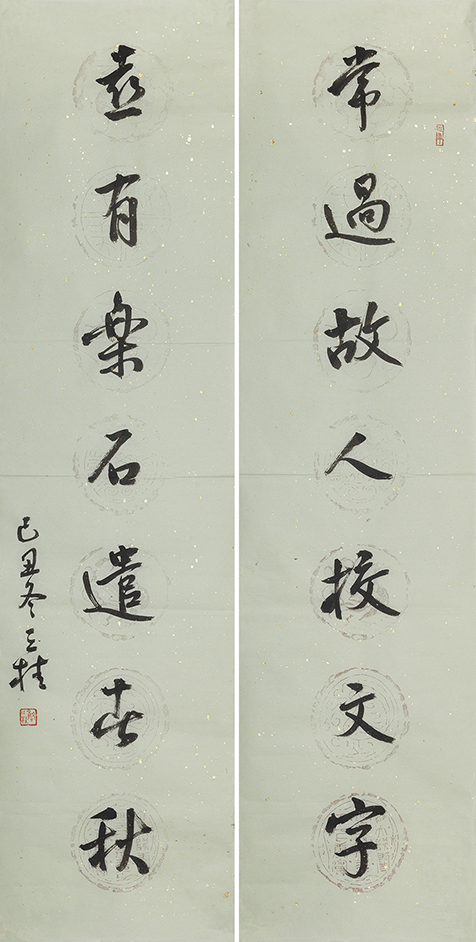 常過故人校文字
喜有楽石遣春秋
己丑冬桂